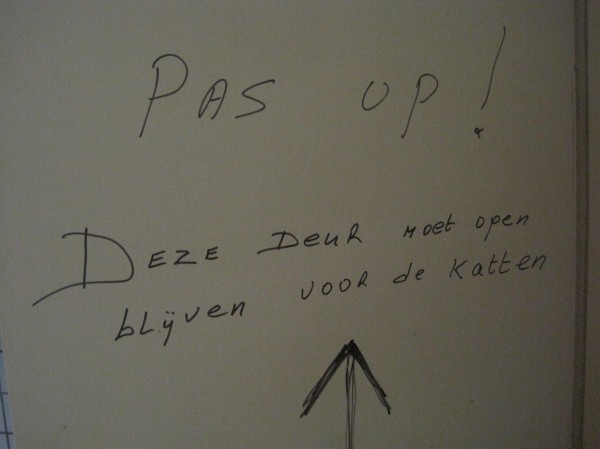 PAS OP!
DEZE DEUR MOET open
blijven VOOR de Katten